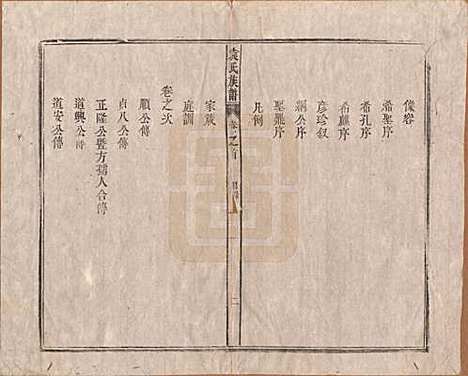 像容
希聖序
希孔序
希麟序
彥珍叙
綱公序
聖謨序
凡例
袁氏族譜
卷之首
目錄
二
家箴
庭訓
卷之次
順公傳
貞八公傳
正隆公暨方孺人合傳
道興公傳
道安公傳